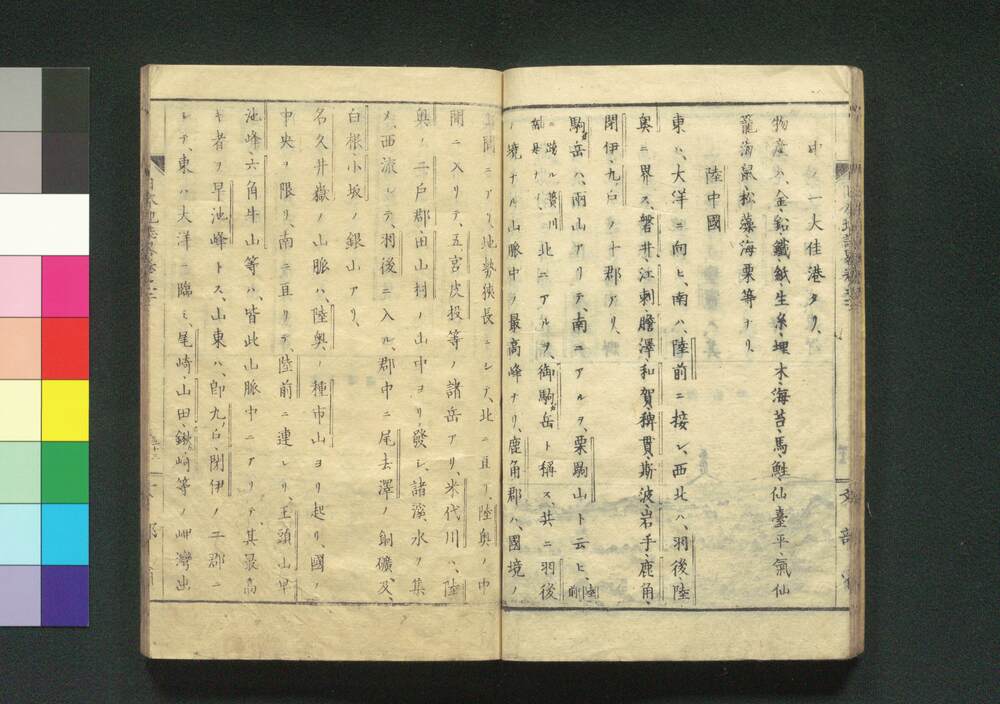 中ノ一大佳港タリ、
物産ハ、金、鉛、鐵、紙、生糸、埋木、海苔、馬、鮭、仙臺平、氣仙
籠、海鼠、松藻、海栗等ナリ、
陸中國
東ハ、大洋ニ向ヒ、南ハ、陸前ニ接シ、西北ハ、羽後、陸
奥ニ界ス、磐井、江刺、膽澤、和賀、稗貫、斯波、岩手、鹿角、
閉伊、九戸ノ十郡アリ、
駒岳ハ、兩山アリテ、南ニアルヲ、栗駒山ト云ヒ、陸前
ニ跨ル 北ニアルヲ、御駒岳ト稱ス、共ニ羽後
ノ境ナル山脈中ノ最高峰ナリ、鹿角郡ハ、國境ノ
ニアリ、地勢狹長ニシテ、北ニ亘リ、陸奥ノ中
間ニ入リテ、五宮、虎投等ノ諸岳アリ、米代川ハ、陸
奥ノ二戸郡、田山村ノ山中ヨリ發シ、諸溪水ヲ集
メ、西流シテ、羽後ニ入ル、郡中ニ尾去澤ノ銅礦、及、
白根、小坂ノ銀山アリ、
名久井嶽ノ山脈ハ、陸奥ノ種市山ヨリ起リ、國ノ
中央ヲ限リ、南ニ亘リテ、陸前ニ連レリ、王頭山、早
池峰、六角牛山等ハ、皆此山脈中ニアリテ、其最高
キ者ヲ早池峰トス、山東ハ、即九戸、閉伊ノ二郡ニ
シテ、東ハ大洋ニ臨ミ、尾崎、山田、鍬崎等ノ岬灣出